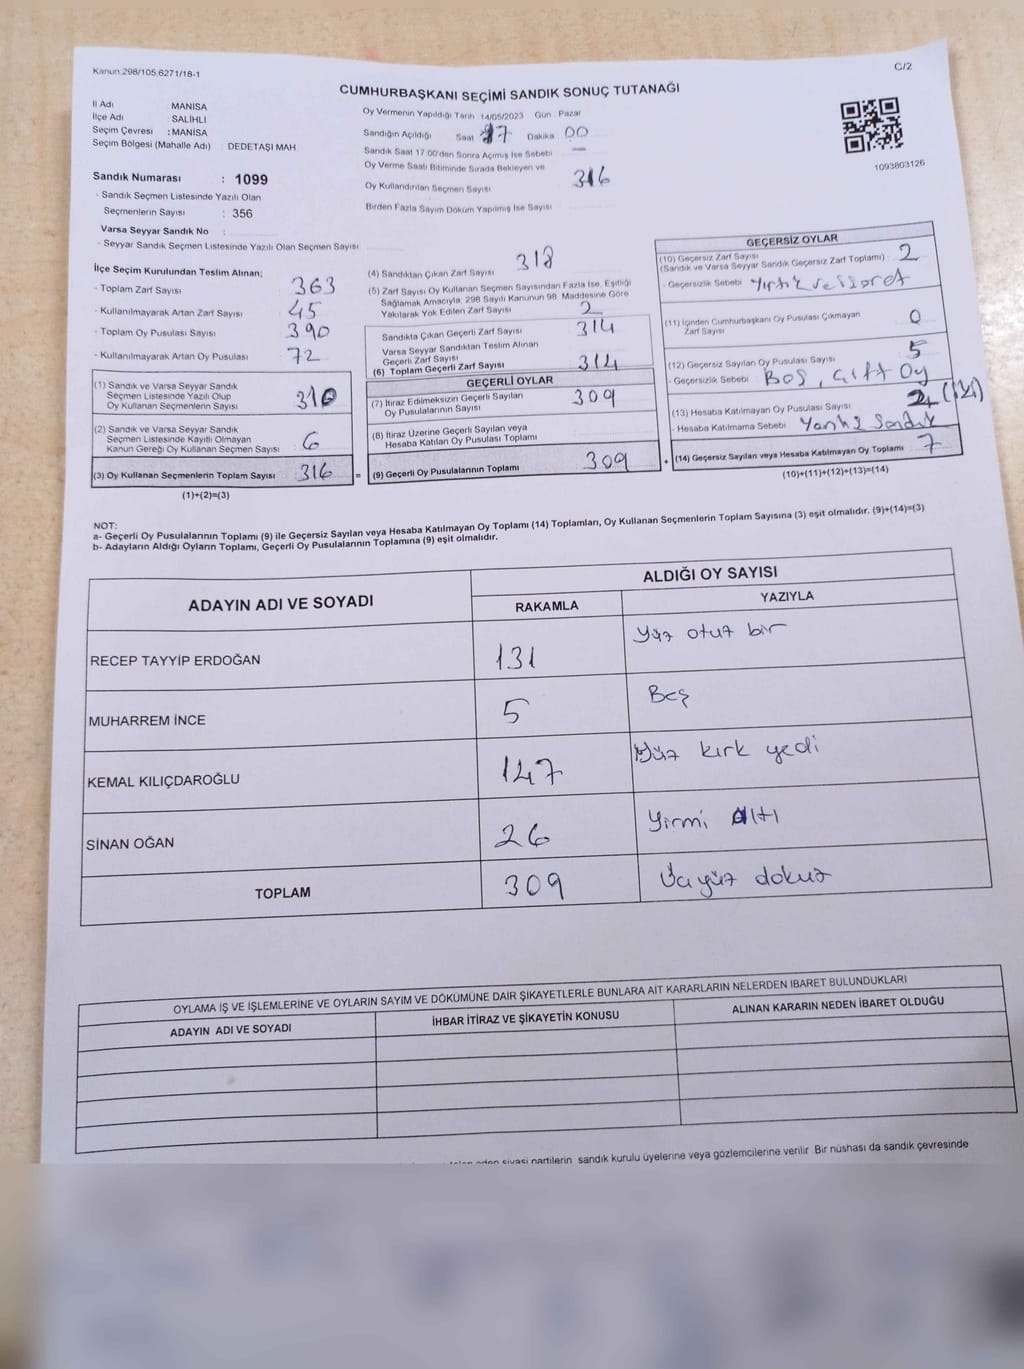 Kanun 298/105,6271/18-1
C/2
CUMHURBAŞKANI SEÇİMİ SANDIK SONUÇ TUTANAĞI
İl Adı : MANİSA
İlçe Adı : SALİHLİ
Seçim Çevresi : MANİSA
Seçim Bölgesi (Mahalle Adı) : DEDETAŞI MAH
Sandık Numarası : 1099
- Sandık Seçmen Listesinde Yazılı Olan
Seçmenlerin Sayısı : 356
Varsa Seyyar Sandık No :
- Seyyar Sandık Seçmen Listesinde Yazılı Olan Seçmen Sayısı
Oy Vermenin Yapıldığı Tarih 14/05/2023 Gün : Pazar
Sandığın Açıldığı Saat 17 Dakika 00
Sandık Saat 17.00'den Sonra Açmış İse Sebebi —
Oy Verme Saati Bitiminde Sırada Bekleyen ve
Oy Kullandırılan Seçmen Sayısı 316
Birden Fazla Sayım Döküm Yapılmış İse Sayısı
1093803126
İlçe Seçim Kurulundan Teslim Alınan;
- Toplam Zarf Sayısı 363
- Kullanılmayarak Artan Zarf Sayısı 45
- Toplam Oy Pusulası Sayısı 390
- Kullanılmayarak Artan Oy Pusulası 72
(1) Sandık ve Varsa Seyyar Sandık
Seçmen Listesinde Yazılı Olup
Oy Kullanan Seçmenlerin Sayısı 310
(2) Sandık ve Varsa Seyyar Sandık
Seçmen Listesinde Kayıtlı Olmayan
Kanun Gereği Oy Kullanan Seçmen Sayısı 6
(3) Oy Kullanan Seçmenlerin Toplam Sayısı 316 =
(1)+(2)=(3)
(4) Sandıktan Çıkan Zarf Sayısı 318
(5) Zarf Sayısı Oy Kullanan Seçmen Sayısından Fazla İse, Eşitliği
Sağlamak Amacıyla, 298 Sayılı Kanunun 98. Maddesine Göre
Yakılarak Yok Edilen Zarf Sayısı 2
Sandıkta Çıkan Geçerli Zarf Sayısı 314
Varsa Seyyar Sandıktan Teslim Alınan
Geçerli Zarf Sayısı
(6) Toplam Geçerli Zarf Sayısı 314
GEÇERLİ OYLAR
(7) İtiraz Edilmeksizin Geçerli Sayılan
Oy Pusulalarının Sayısı 309
(8) İtiraz Üzerine Geçerli Sayılan veya
Hesaba Katılan Oy Pusulası Toplamı
(9) Geçerli Oy Pusulalarının Toplamı 309 +
GEÇERSİZ OYLAR
(10) Geçersiz Zarf Sayısı
(Sandık ve Varsa Seyyar Sandık Geçersiz Zarf Toplamı) : 2
- Geçersizlik Sebebi Yırtık ve işaret
(11) İçinden Cumhurbaşkanı Oy Pusulası Çıkmayan
Zarf Sayısı 0
(12) Geçersiz Sayılan Oy Pusulası Sayısı 5
- Geçersizlik Sebebi Boş, Çift Oy
(13) Hesaba Katılmayan Oy Pusulası Sayısı 2 (iki)
- Hesaba Katılmama Sebebi Yanlış Sandık
(14) Geçersiz Sayılan veya Hesaba Katılmayan Oy Toplamı 7
(10)+(11)+(12)+(13)=(14)
NOT:
a- Geçerli Oy Pusulalarının Toplamı (9) ile Geçersiz Sayılan veya Hesaba Katılmayan Oy Toplamı (14) Toplamları, Oy Kullanan Seçmenlerin Toplam Sayısına (3) eşit olmalıdır. (9)+(14)=(3)
b- Adayların Aldığı Oyların Toplamı, Geçerli Oy Pusulalarının Toplamına (9) eşit olmalıdır.
ADAYIN ADI VE SOYADI
ALDIĞI OY SAYISI
RAKAMLA YAZIYLA
RECEP TAYYİP ERDOĞAN 131 Yüz otuz bir
MUHARREM İNCE 5 Beş
KEMAL KILIÇDAROĞLU 147 Yüz kırk yedi
SİNAN OĞAN 26 Yirmi Altı
TOPLAM 309 Üçyüz dokuz
OYLAMA İŞ VE İŞLEMLERİNE VE OYLARIN SAYIM VE DÖKÜMÜNE DAİR ŞİKAYETLERLE BUNLARA AİT KARARLARIN NELERDEN İBARET BULUNDUKLARI
ADAYIN ADI VE SOYADI İHBAR İTİRAZ VE ŞİKAYETİN KONUSU ALINAN KARARIN NEDEN İBARET OLDUĞU
eden siyasi partilerin sandık kurulu üyelerine veya gözlemcilerine verilir. Bir nüshası da sandık çevresinde